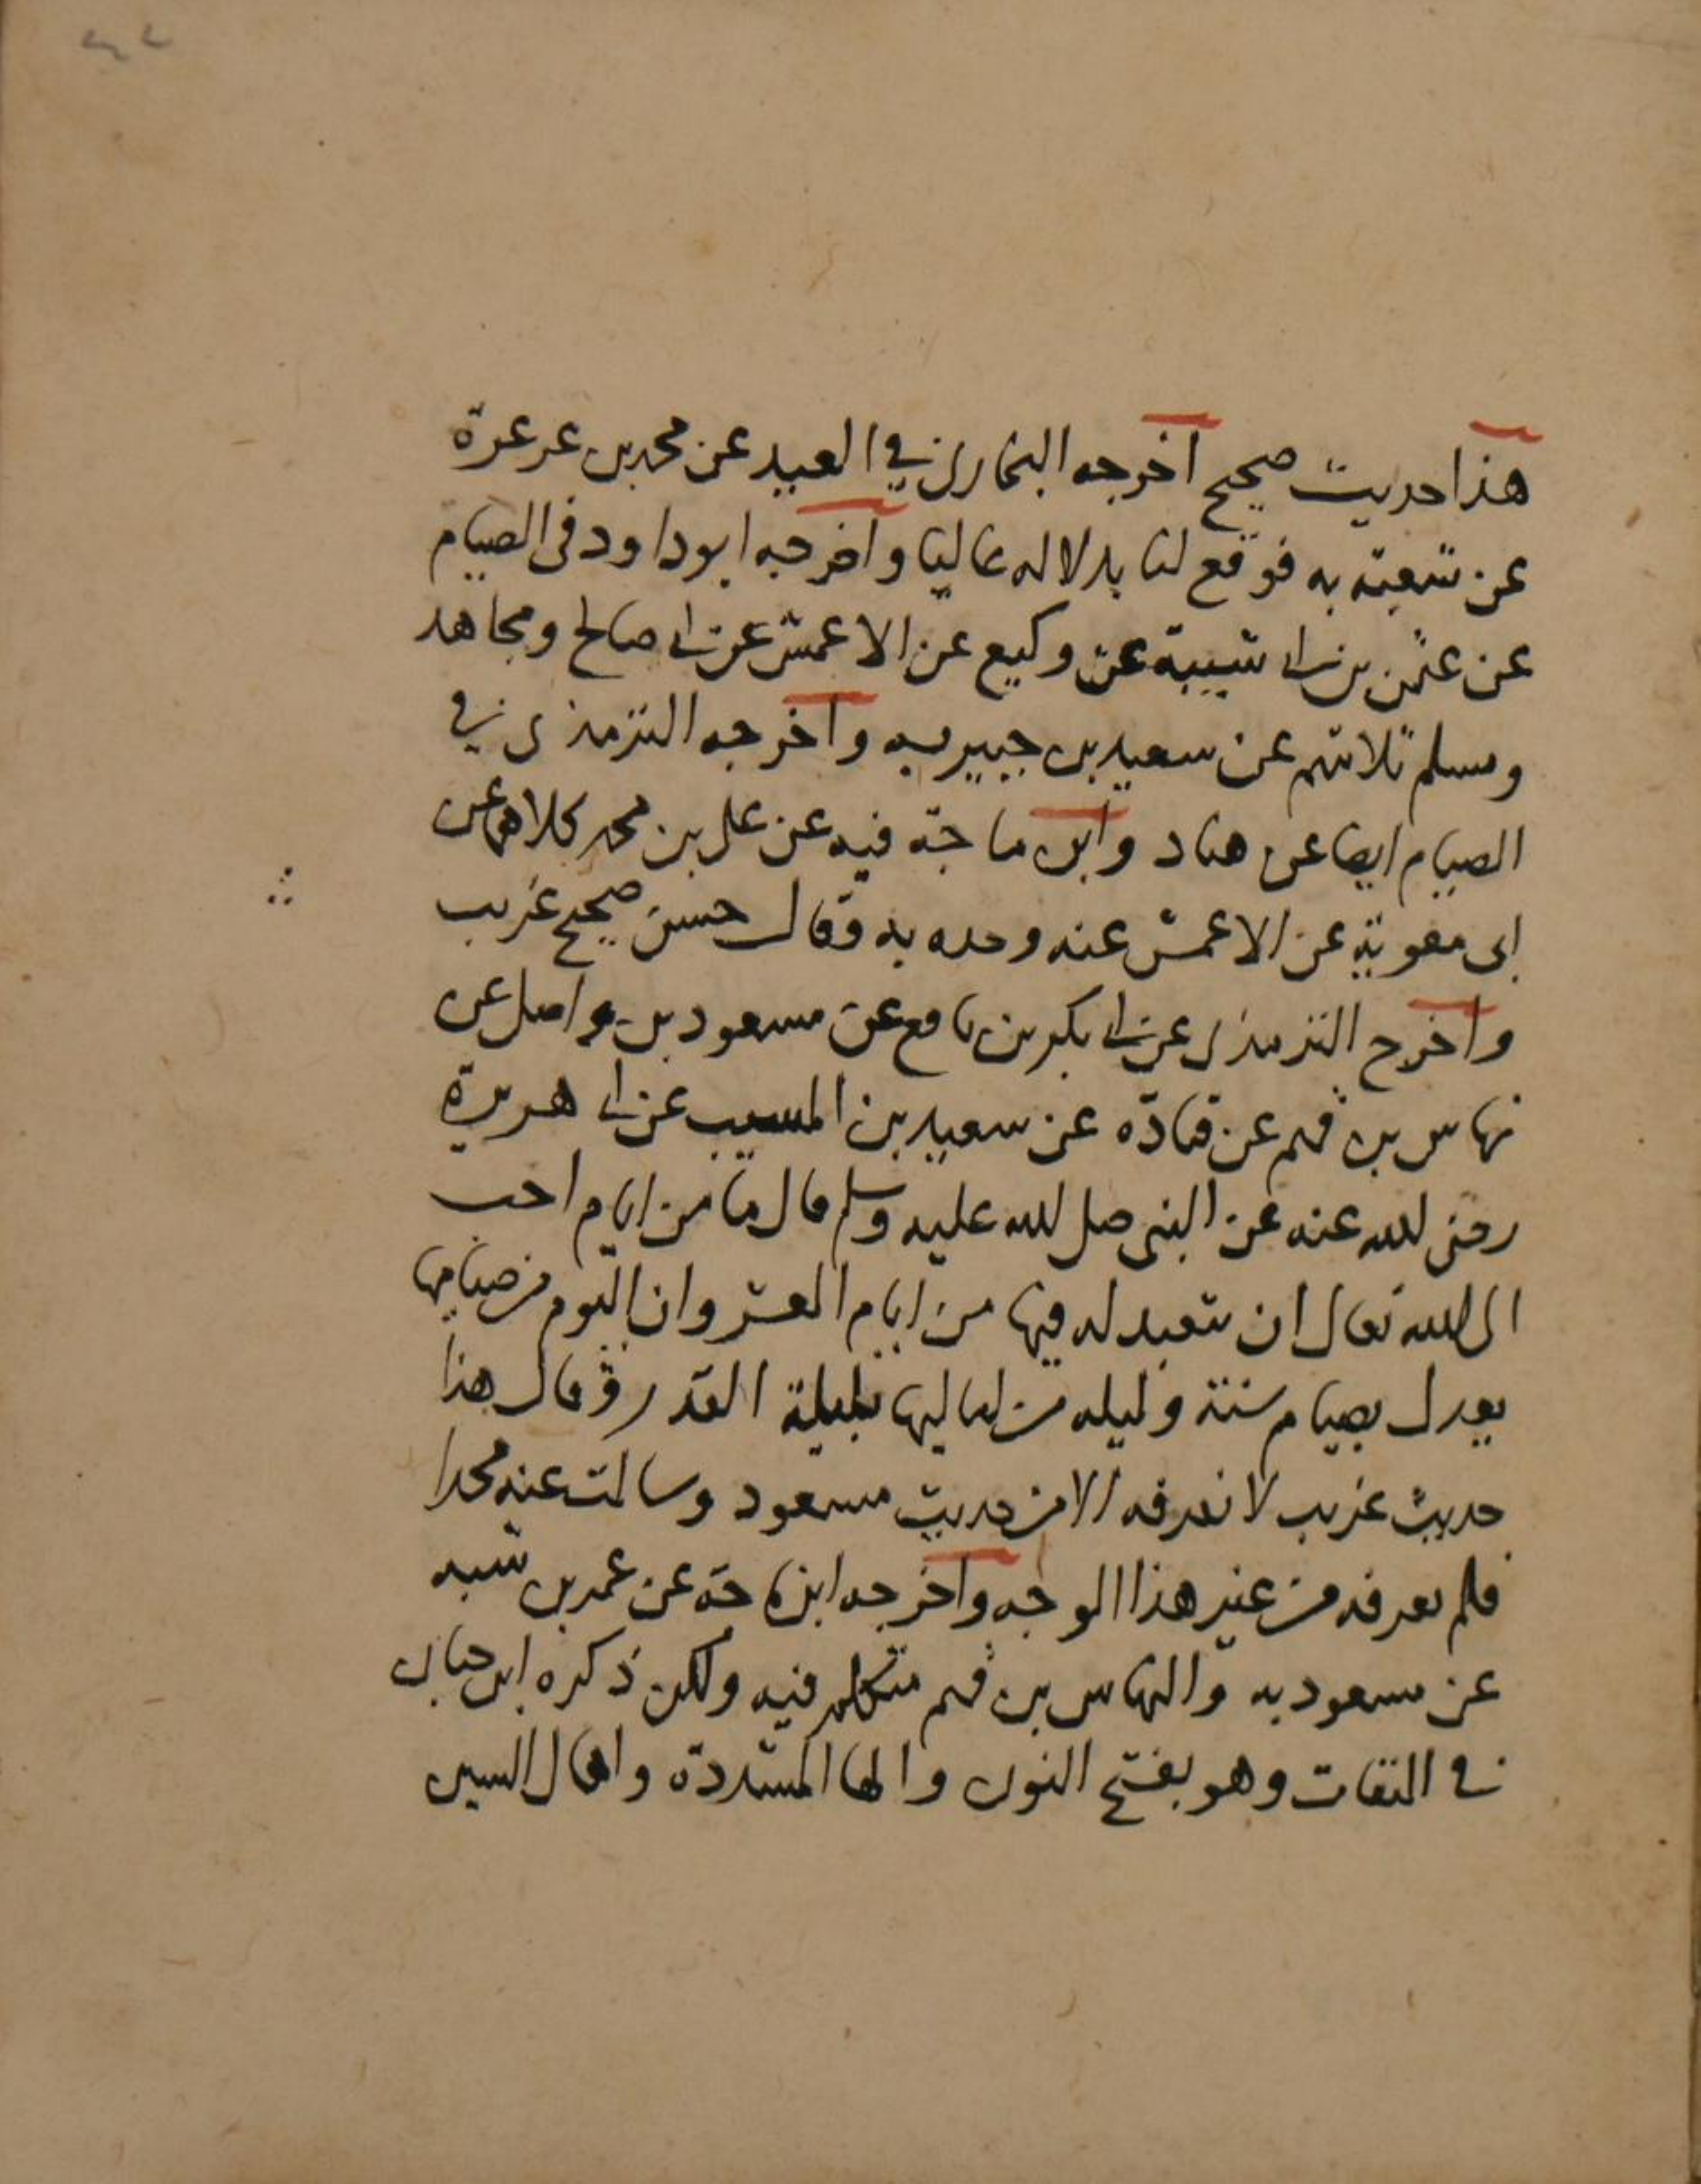 هذا حديث صحيح اخرجه البخارى في العيد عن محمد بن عرعرة
عن شعبة به فوقع لنا بدلا له عاليا واخرجه ابو داود فى الصيام
عن عثمن بن ابى شيبة عن وكيع عن الاعمش عن ابى صالح ومجاهد
ومسلم ثلاثتهم عن سعيد بن جبير به واخرجه الترمذى في
الصيام ايضا عن هناد وابن ماجة فيه عن على بن محمد كلاهما عن
ابى معوية عن الاعمش عنه وحده به وقال حسن صحيح غريب
واخرج الترمذى عن ابى بكر بن نافع عن مسعود بن واصل عن
نهاس بن قهم عن قتادة عن سعيد بن المسيب عن ابى هريرة
رضى الله عنه عن النبى صلى الله عليه وسلم قال ما من ايام احب
الى الله تعالى ان يتعبد له فيها من ايام العشر وان اليوم من صيامها
يعدل بصيام سنة وليله من لياليها بليلة القدر وقال هذا
حديث غريب لا نعرفه الا من حديث مسعود وسالت عنه محمدا
فلم يعرفه من غير هذا الوجه واخرجه ابن ماجة عن عمر بن شبه
عن مسعود به والنهاس بن قهم متكلم فيه ولكن ذكره ابن حبان
في الثقات وهو بفتح النون والها المشددة واهمال السين